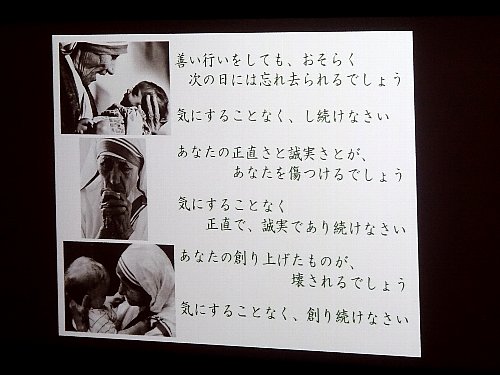 善い行いをしても、おそらく
次の日には忘れ去られるでしょう
気にすることなく、し続けなさい
あなたの正直さと誠実さとが、
あなたを傷つけるでしょう
気にすることなく
正直で、誠実であり続けなさい
あなたの創り上げたものが、
壊されるでしょう
気にすることなく、創り続けなさい